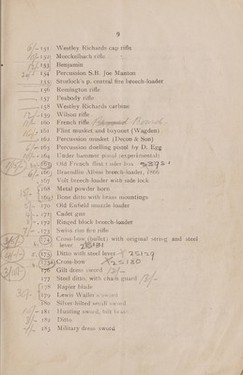 9
151 Westley Richards cap rifle
152 Monckelbach rifle
153 Benjamin
154 Percussion S.B. Joe Manton
155 Sturlock's p. central fire breech-loader
156 Remington rifle
157 Peabody rifle
158 Westley Richards carbine
159 Wilson rifle
160 French rifle
161 Flint musket and bayonet (Wagden)
162 Percussion musket (Dixon & Son)
163 Percussion duelling pistol by D. Egg
164 Under hammer pistol (experimental)
165 Old French flint
166 Brazzillin Albini breech-loader, 1866
167 Volt breech loader with side lock
168 Metal powder horn
169 Bone ditto with brass mountings
170 Old Enfield muzzle loader
171 Cadet gun
172 Ringed block breech-loader
173 Swiss rim fire rifle
174 Cross-bow (bullet) with original string and steel
lever 25181
175 Ditto with steel lever 25179
Cross-bow 25180
176 Gilt dress sword
177 Steel ditto, with chain guard 15/-
178 Rapier blade
179 Lewis Waller's sword
180 Silver hilted small sword
181 Hunting sword,
182 Ditto
183 Military dress sword